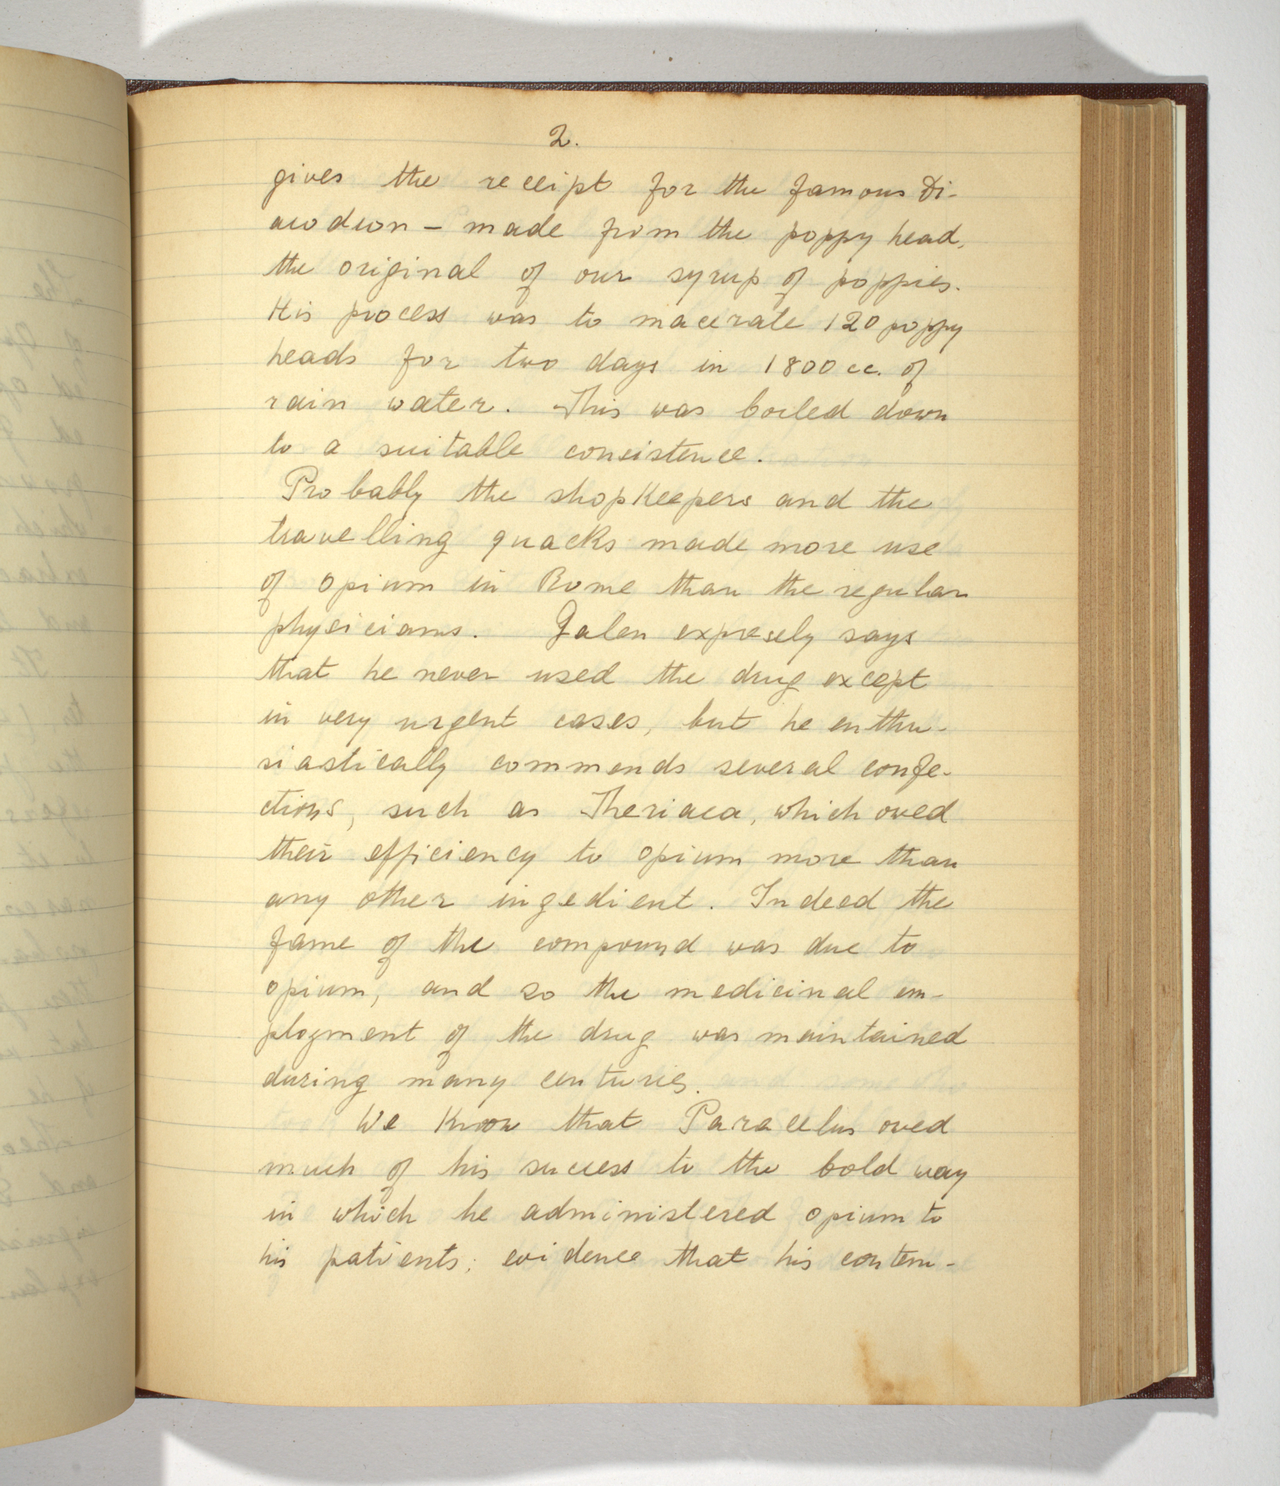 2.
gives the receipt for the famous Di-
acodion – made from the poppy head,
the original of our syrup of poppies.
His process was to macerate 120 poppy
heads for two days in 1800 cc. of
rain water. This was boiled down
to a suitable consistence.
Probably the shopkeepers and the
travelling quacks made more use
of opium in Rome than the regular
physicians. Galen expresely says
that he never used the drug except
in very urgent cases, but he enthu-
siastically commends several confe-
ctions, such as Theriaca, which owed
their efficiency to opium more than
any other ingedient. Indeed the
fame of the compound was due to
opium, and so the medicinal em-
ployment of the drug was maintained
during many centuries.
We know that Paracelus owed
much of his success to the bold way
in which he administered opium to
his patients; evidence that his contem-